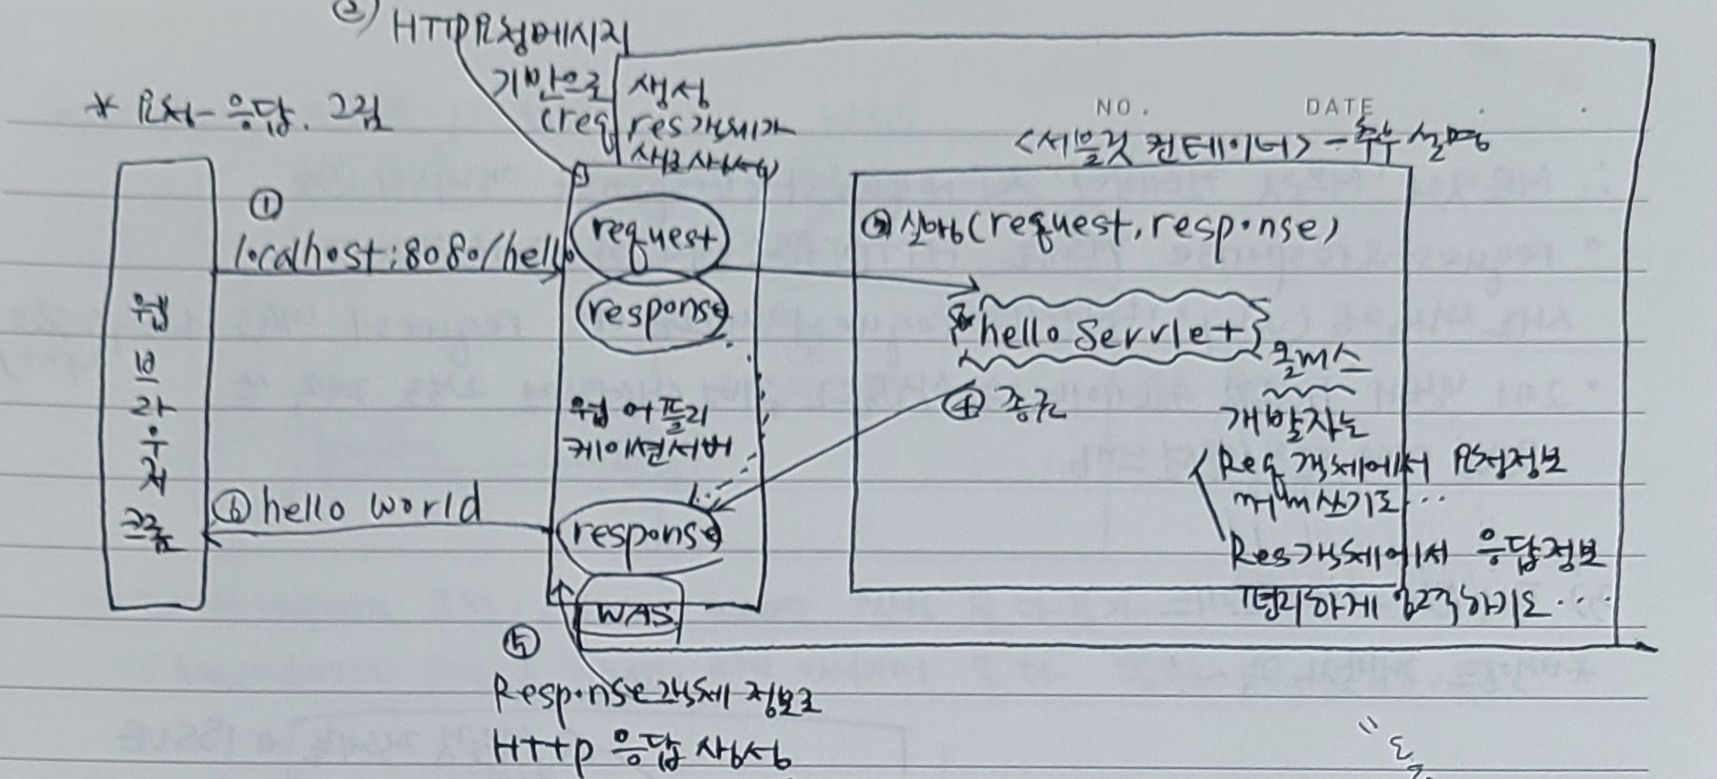 ② HTTP 요청메시지
기반으로 생성
(req res 객체가
새로 생성)
* 요청-응답. 그림
NO. DATE
<서블릿 컨테이너> - 추후 설명
①
localhost:8080/hello
request
response
③ 실행(request, response)
hello Servlet
웹
브
라
우
저
크롬
웹 어플리
케이션서버
④ 종료
개발자는
Req 객체에서 요청정보
쓰기도...
Res 객체에서 응답정보
편리하게 입력하기도...
⑥ hello world
response
WAS
⑤
Response 객체 정보로
HTTP 응답 생성